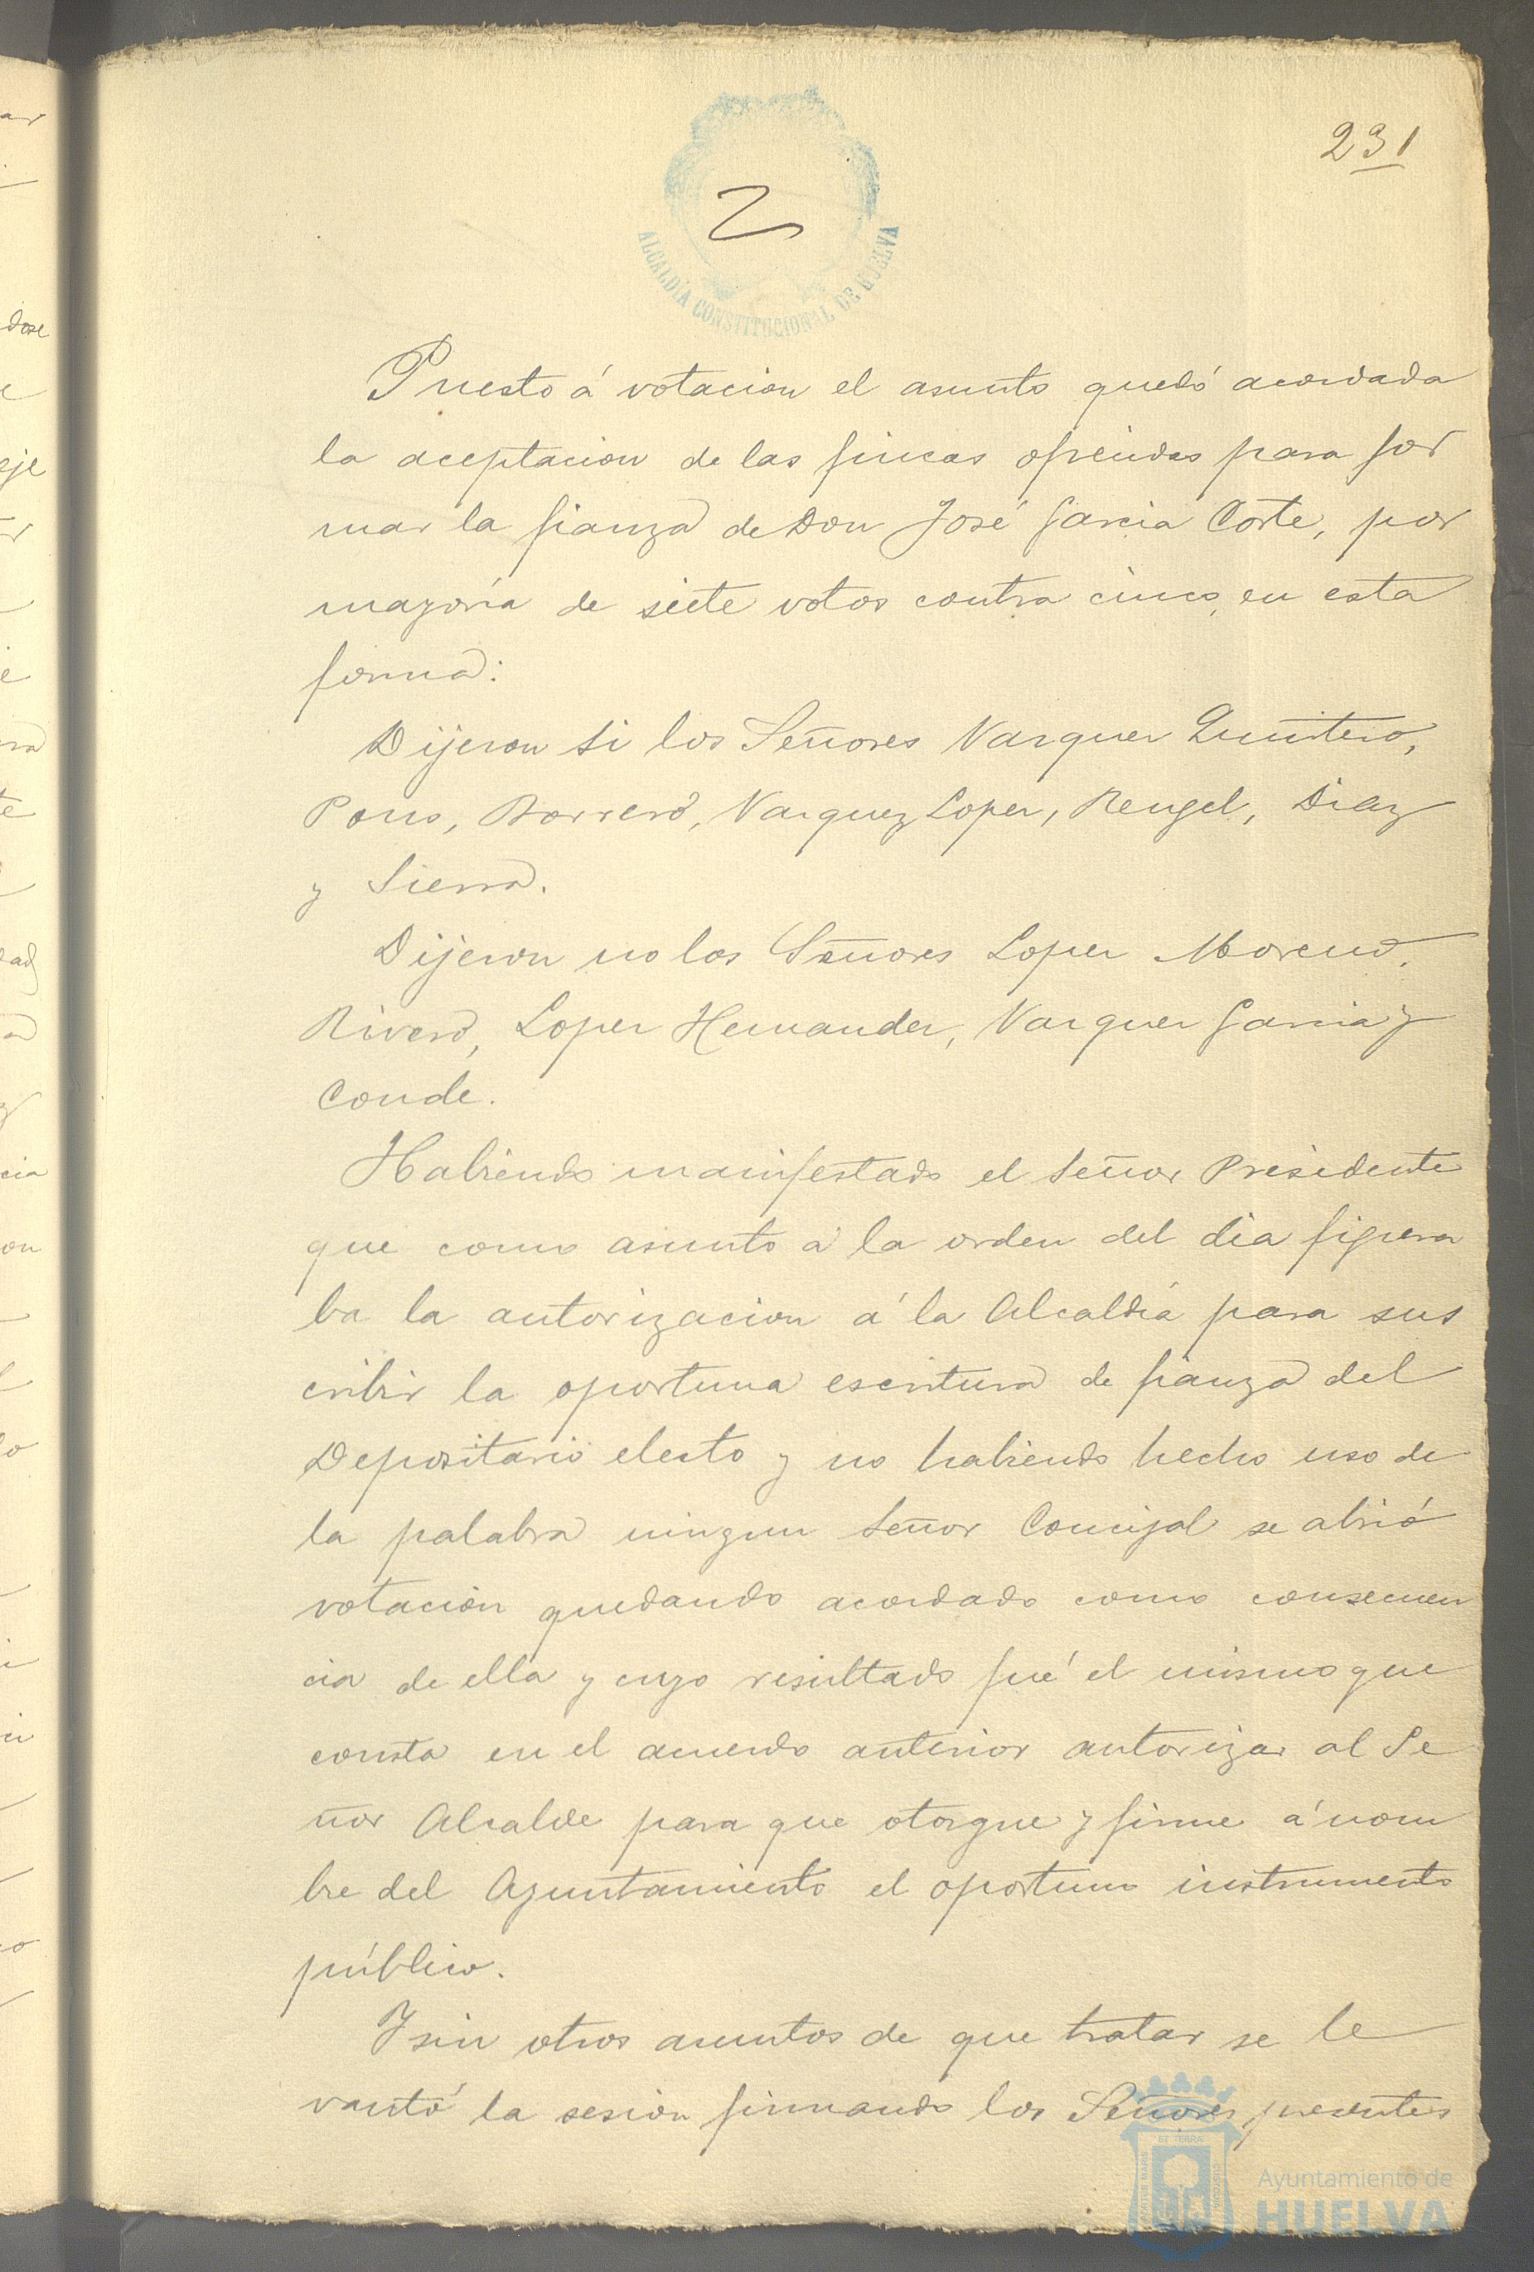 231
2
ALCALDÍA CONSTITUCIONAL DE HUELVA
Puesto á votacion el asunto quedó acordada
la aceptacion de las fincas ofrecidas para for
mar la fianza de Don José Garcia Corte, por
mayoría de siete votos contra cinco, en esta
forma:
Dijeron si los Señores Vazquez Quintero,
Pons, Borrero, Vazquez Lopez, Rengel, Diaz
y Sierra.
Dijeron no los Señores Lopez Moreno,
Rivero, Lopez Hernandez, Vazquez Garcia y
Conde.
Habiendo manifestado el Señor Presidente
que como asunto á la orden del dia figura
ba la autorizacion á la Alcaldía para sus
cribir la oportuna escritura de fianza del
Depositario electo y no habiendo hecho uso de
la palabra ningun Señor Concejal se abrió
votacion quedando acordado como consecuen
cia de ella y cuyo resultado fué el mismo que
consta en el acuerdo anterior autorizar al Se
ñor Alcalde para que otorgue y firme á nom
bre del Ayuntamiento el oportuno instrumento
público.
Y sin otros asuntos de que tratar se le
vantó la sesion firmando los Señores presentes
Ayuntamiento de
HUELVA